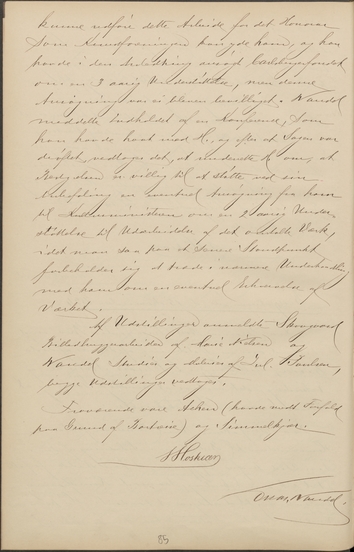 kunne udføre dette Arbeide for det Honorar
som Kunstforeningen kan yde ham, og han
havde i den Anledning ansøgt Carlsbergfondet
om en 3 aarig Understøttelse, men denne
Ansøgning var ei bleven bevilliget. Wandel
meddelte Indholdet af en Konference, som
han havde havt med H., og efter at Sagen var
drøftet, vedtoges det, at underrette H om, at
Bestyrelsen er villig til at støtte ved sin
Anbefaling en eventuel Ansøgning fra ham
til Kultusministeren om en 2 aarig Under-
støttelse til Udarbeidelse af det omtalte Værk,
idet man saa paa et senere Standpunkt
forbeholder sig at træde i nærmere Underhandling
med ham om en eventuel Udgivelse af
Værket.
Af Udstillinger anmeldte Skovgaard
Billedhuggerarbeider af Nielsen og
Wandel Studier og Malerier af Jul. Paulsen,
begge Udstillinger vedtoges.
Fraværende vare Acken (havde meldt Forfald
paa Grund af Bortreise) og Himmelskjær.
Oscar Wandel.
85